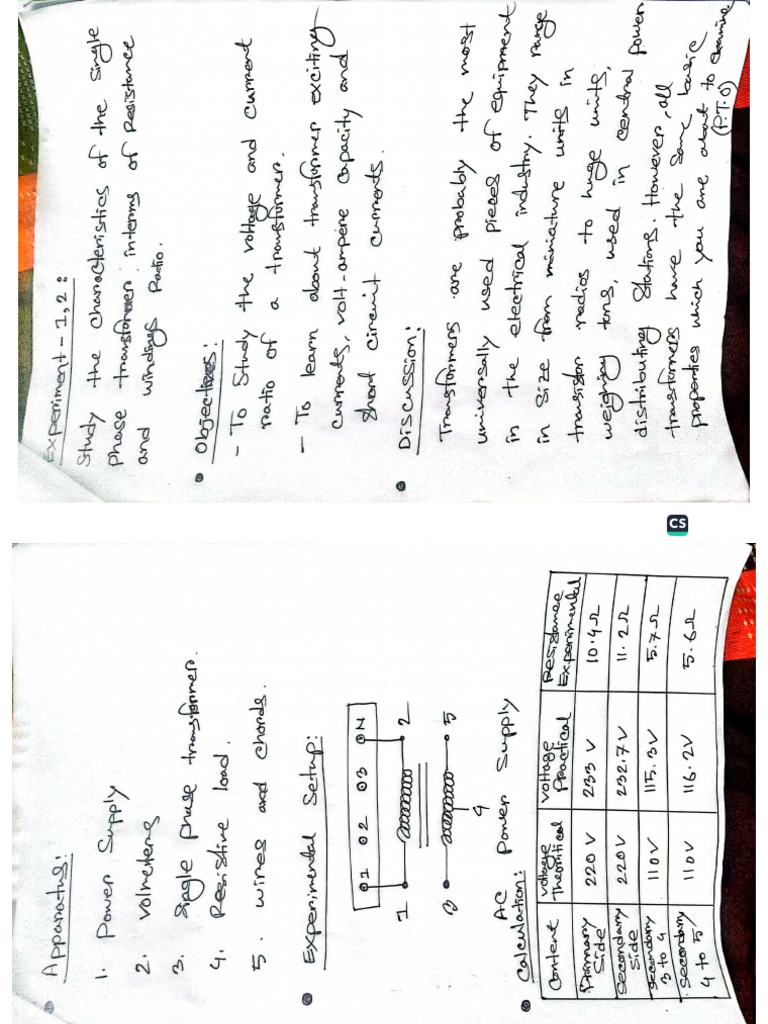 Experiment - 1,2 :
Study the characteristics of the single
phase transformer interms of Resistance
and windings Ratio.
Objectives :
- To Study the voltage and current
ratio of a transformer.
- To learn about transformer exciting
currents, volt-ampere capacity and
short circuit currents.
Discussion:
Transformers are probably the most
universally used pieces of equipment
in the electrical industry. They range
in size from miniature units in
transistor radios to huge units,
weighing tons, used in central power
distributing stations. However, all
transformers have the same basic
properties which you are about to examine
(P.T.O)
CS
Apparatus:
1. Power Supply
2. Volmeters
3. Single phase transformer.
4. Resistive load.
5. wires and chords.
Experimental Setup:
1 2 3 N
1 2
3 4 5
AC Power Supply
Calculation:
Content Voltage Theoritical Voltage Practical Resistance Experimental
Primary Side 220 V 233 V 10.4 Ω
Secondary Side 220V 232.7V 11.2 Ω
Secondary 3 to 4 110V 115.3V 5.7 Ω
Secondary 4 to 5 110V 116.2V 5.6 Ω